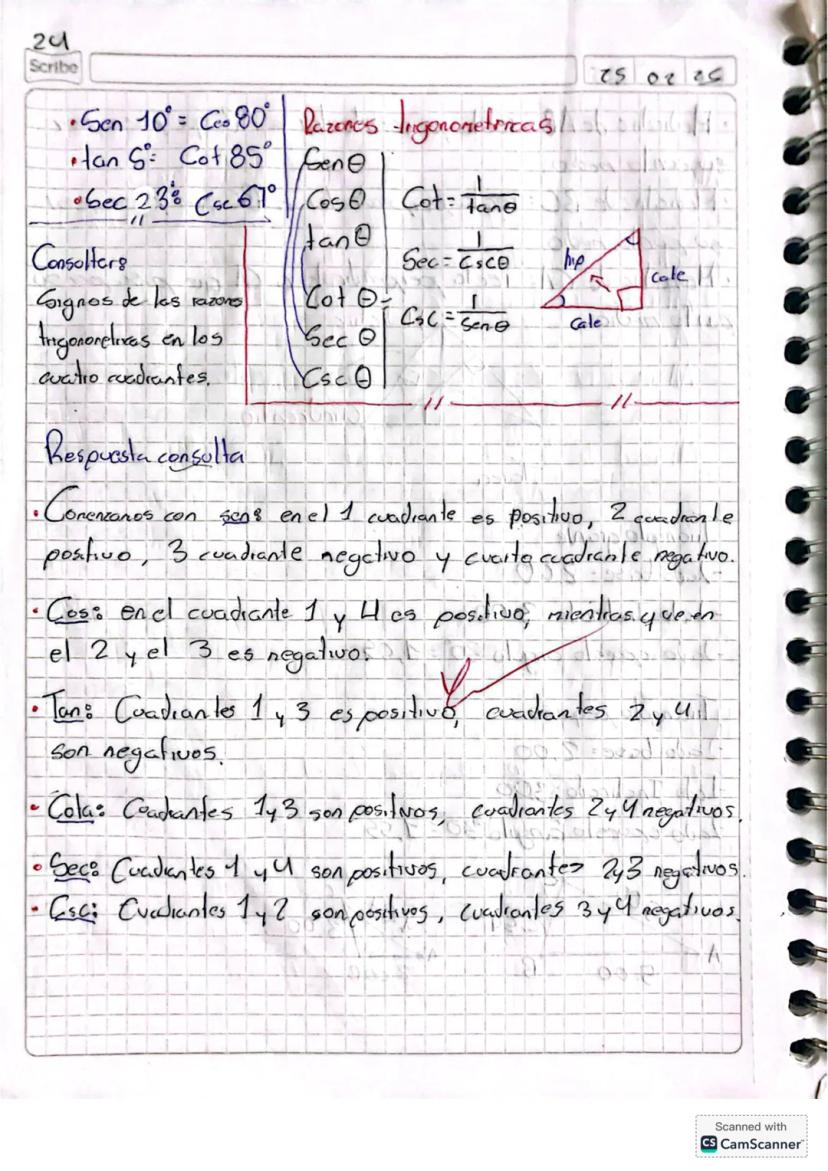 24
Scribe
25 02 25
• Sen 10° = Cos 80°
• tan 5° = Cot 85°
• Sec 23° = Csc 67°
Consultar:
Signos de las razones
trigonometricas en los
cuatro cuadrantes.
Razones trigonometricas
Sen θ
Cos θ
tan θ
Cot θ =
Sec θ
Csc θ
Cot = 1/tan θ
Sec = 1/Csc θ
Csc = 1/Sen θ
hip
cate
cate
Respuesta consulta
• Comenzamos con sen: en el 1 cuadrante es positivo, 2 cuadrante
positivo, 3 cuadrante negativo y cuarto cuadrante negativo.
• Cos: en el cuadrante 1 y 4 es positivo, mientras que en
el 2 y el 3 es negativo.
• Tan: Cuadrantes 1 y 3 es positivo, cuadrantes 2 y 4
son negativos.
• Cota: Cuadrantes 1 y 3 son positivos, cuadrantes 2 y 4 negativos.
• Sec: Cuadrantes 1 y 4 son positivos, cuadrantes 2y3 negativos.
• Csc: Cuadrantes 1 y 2 son positivos, cuadrantes 3 y 4 negativos.
Scanned with
CS CamScanner